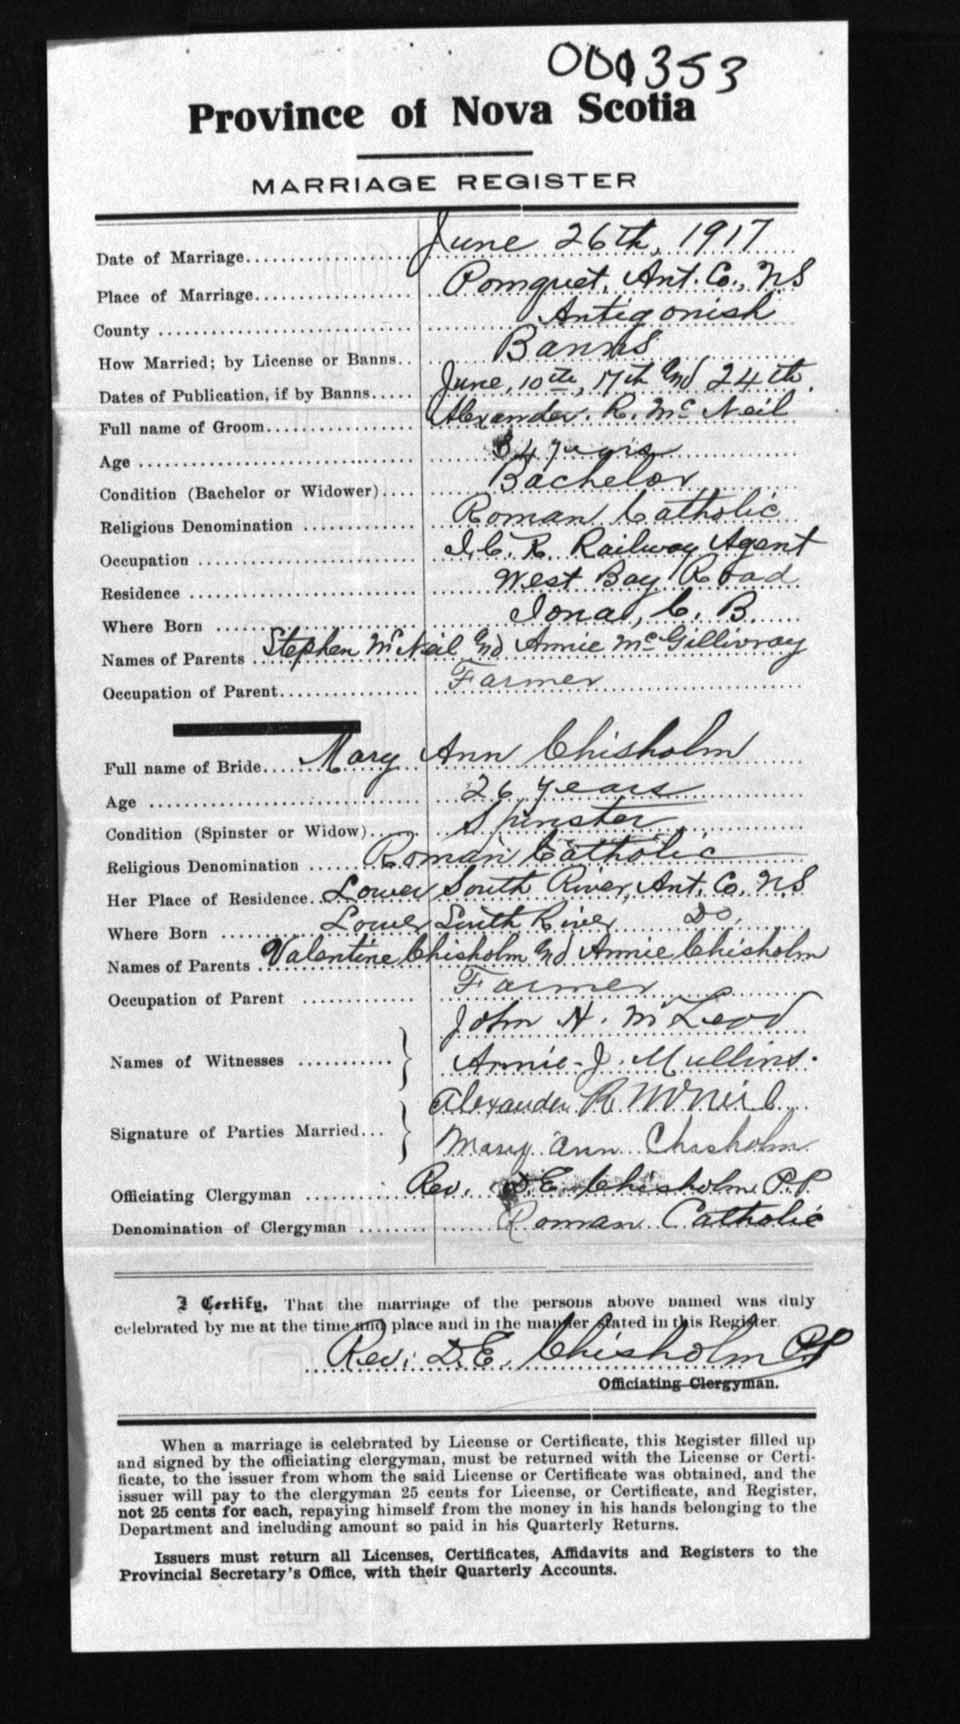 000353
Province of Nova Scotia
MARRIAGE REGISTER
Date of Marriage.................... June 26th, 1917
Place of Marriage.................... Pomquet, Ant. Co., NS
County .................... Antigonish
How Married; by License or Banns.. Banns
Dates of Publication, if by Banns..... June, 10th, 17th and 24th.
Full name of Groom.................... Alexander R. McNeil
Age .................... 34 years
Condition (Bachelor or Widower).... Bachelor
Religious Denomination ............. Roman Catholic
Occupation .................... I.C.R. Railway Agent
Residence .................... West Bay Road
Where Born .................... Iona, C. B.
Names of Parents .. Stephen McNeil and Annie McGillivray
Occupation of Parent............... Farmer
Full name of Bride.... Mary Ann Chisholm
Age .................... 26 years
Condition (Spinster or Widow)...... Spinster
Religious Denomination ...... Roman Catholic
Her Place of Residence.. Lower South River, Ant. Co. NS
Where Born ............ Lower South River Do.
Names of Parents .. Valentine Chisholm and Annie Chisholm
Occupation of Parent ............. Farmer
John H. McLeod
Names of Witnesses ............ } Annie J. Mullins.
Alexander R McNeil
Signature of Parties Married... } Mary Ann Chisholm
Officiating Clergyman ............ Rev. D.E. Chisholm P.P.
Denomination of Clergyman ............ Roman Catholic
I Certify, That the marriage of the persons above named was duly
celebrated by me at the time and place and in the manner stated in this Register.
Rev. D.E. Chisholm PP
Officiating Clergyman.
When a marriage is celebrated by License or Certificate, this Register filled up
and signed by the officiating clergyman, must be returned with the License or Certi-
ficate, to the issuer from whom the said License or Certificate was obtained, and the
issuer will pay to the clergyman 25 cents for License, or Certificate, and Register,
not 25 cents for each, repaying himself from the money in his hands belonging to the
Department and including amount so paid in his Quarterly Returns.
Issuers must return all Licenses, Certificates, Affidavits and Registers to the
Provincial Secretary's Office, with their Quarterly Accounts.